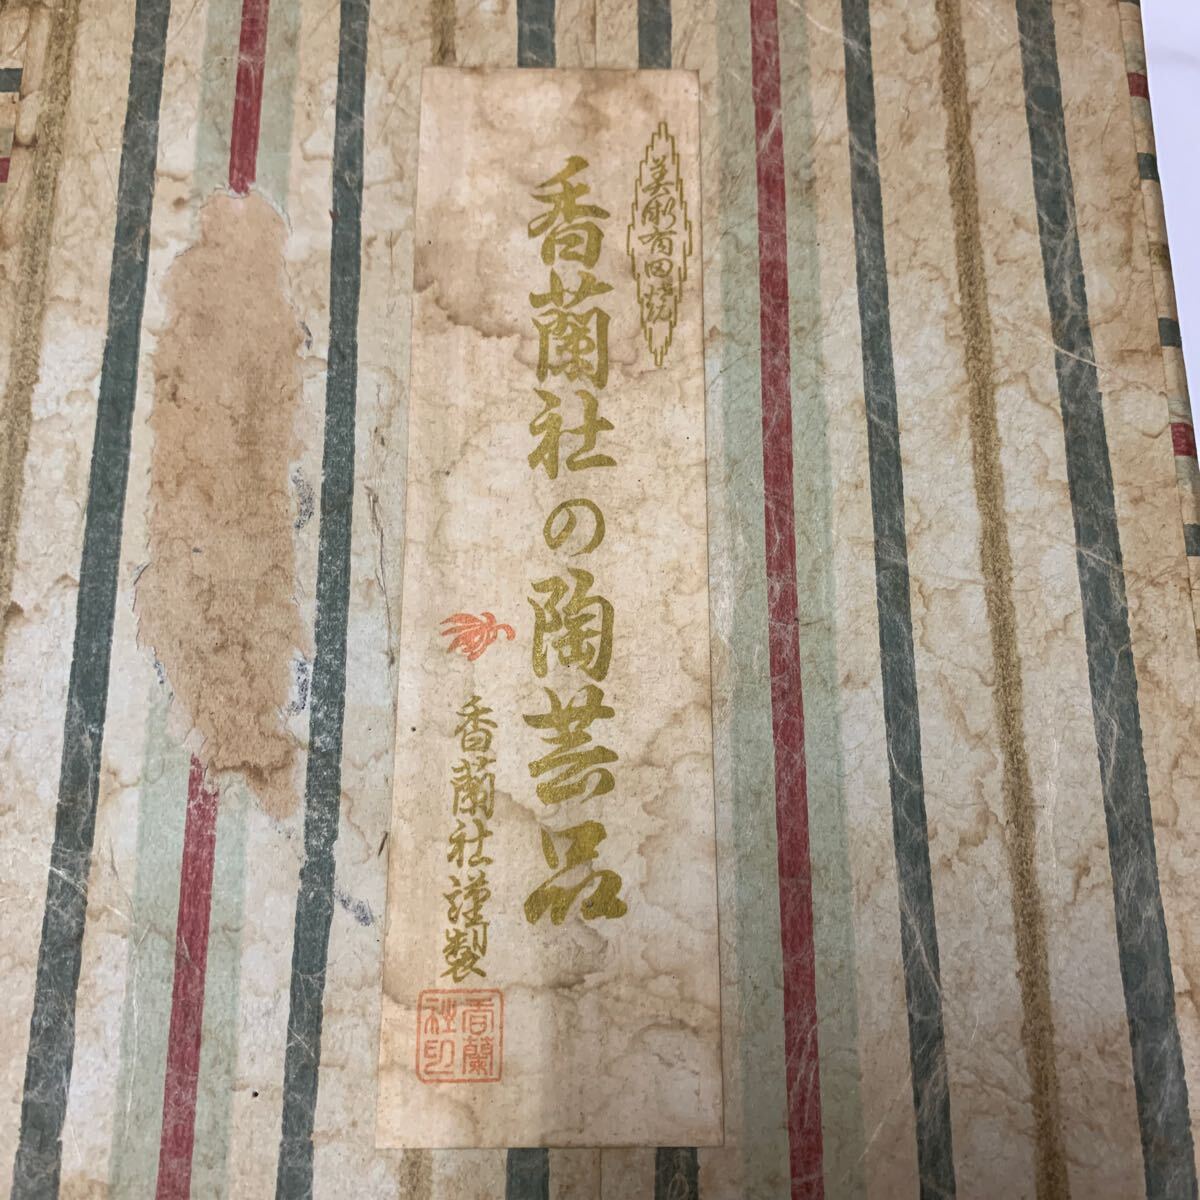 美彫有田焼
香蘭社の陶芸品
香蘭社謹製
香蘭社印